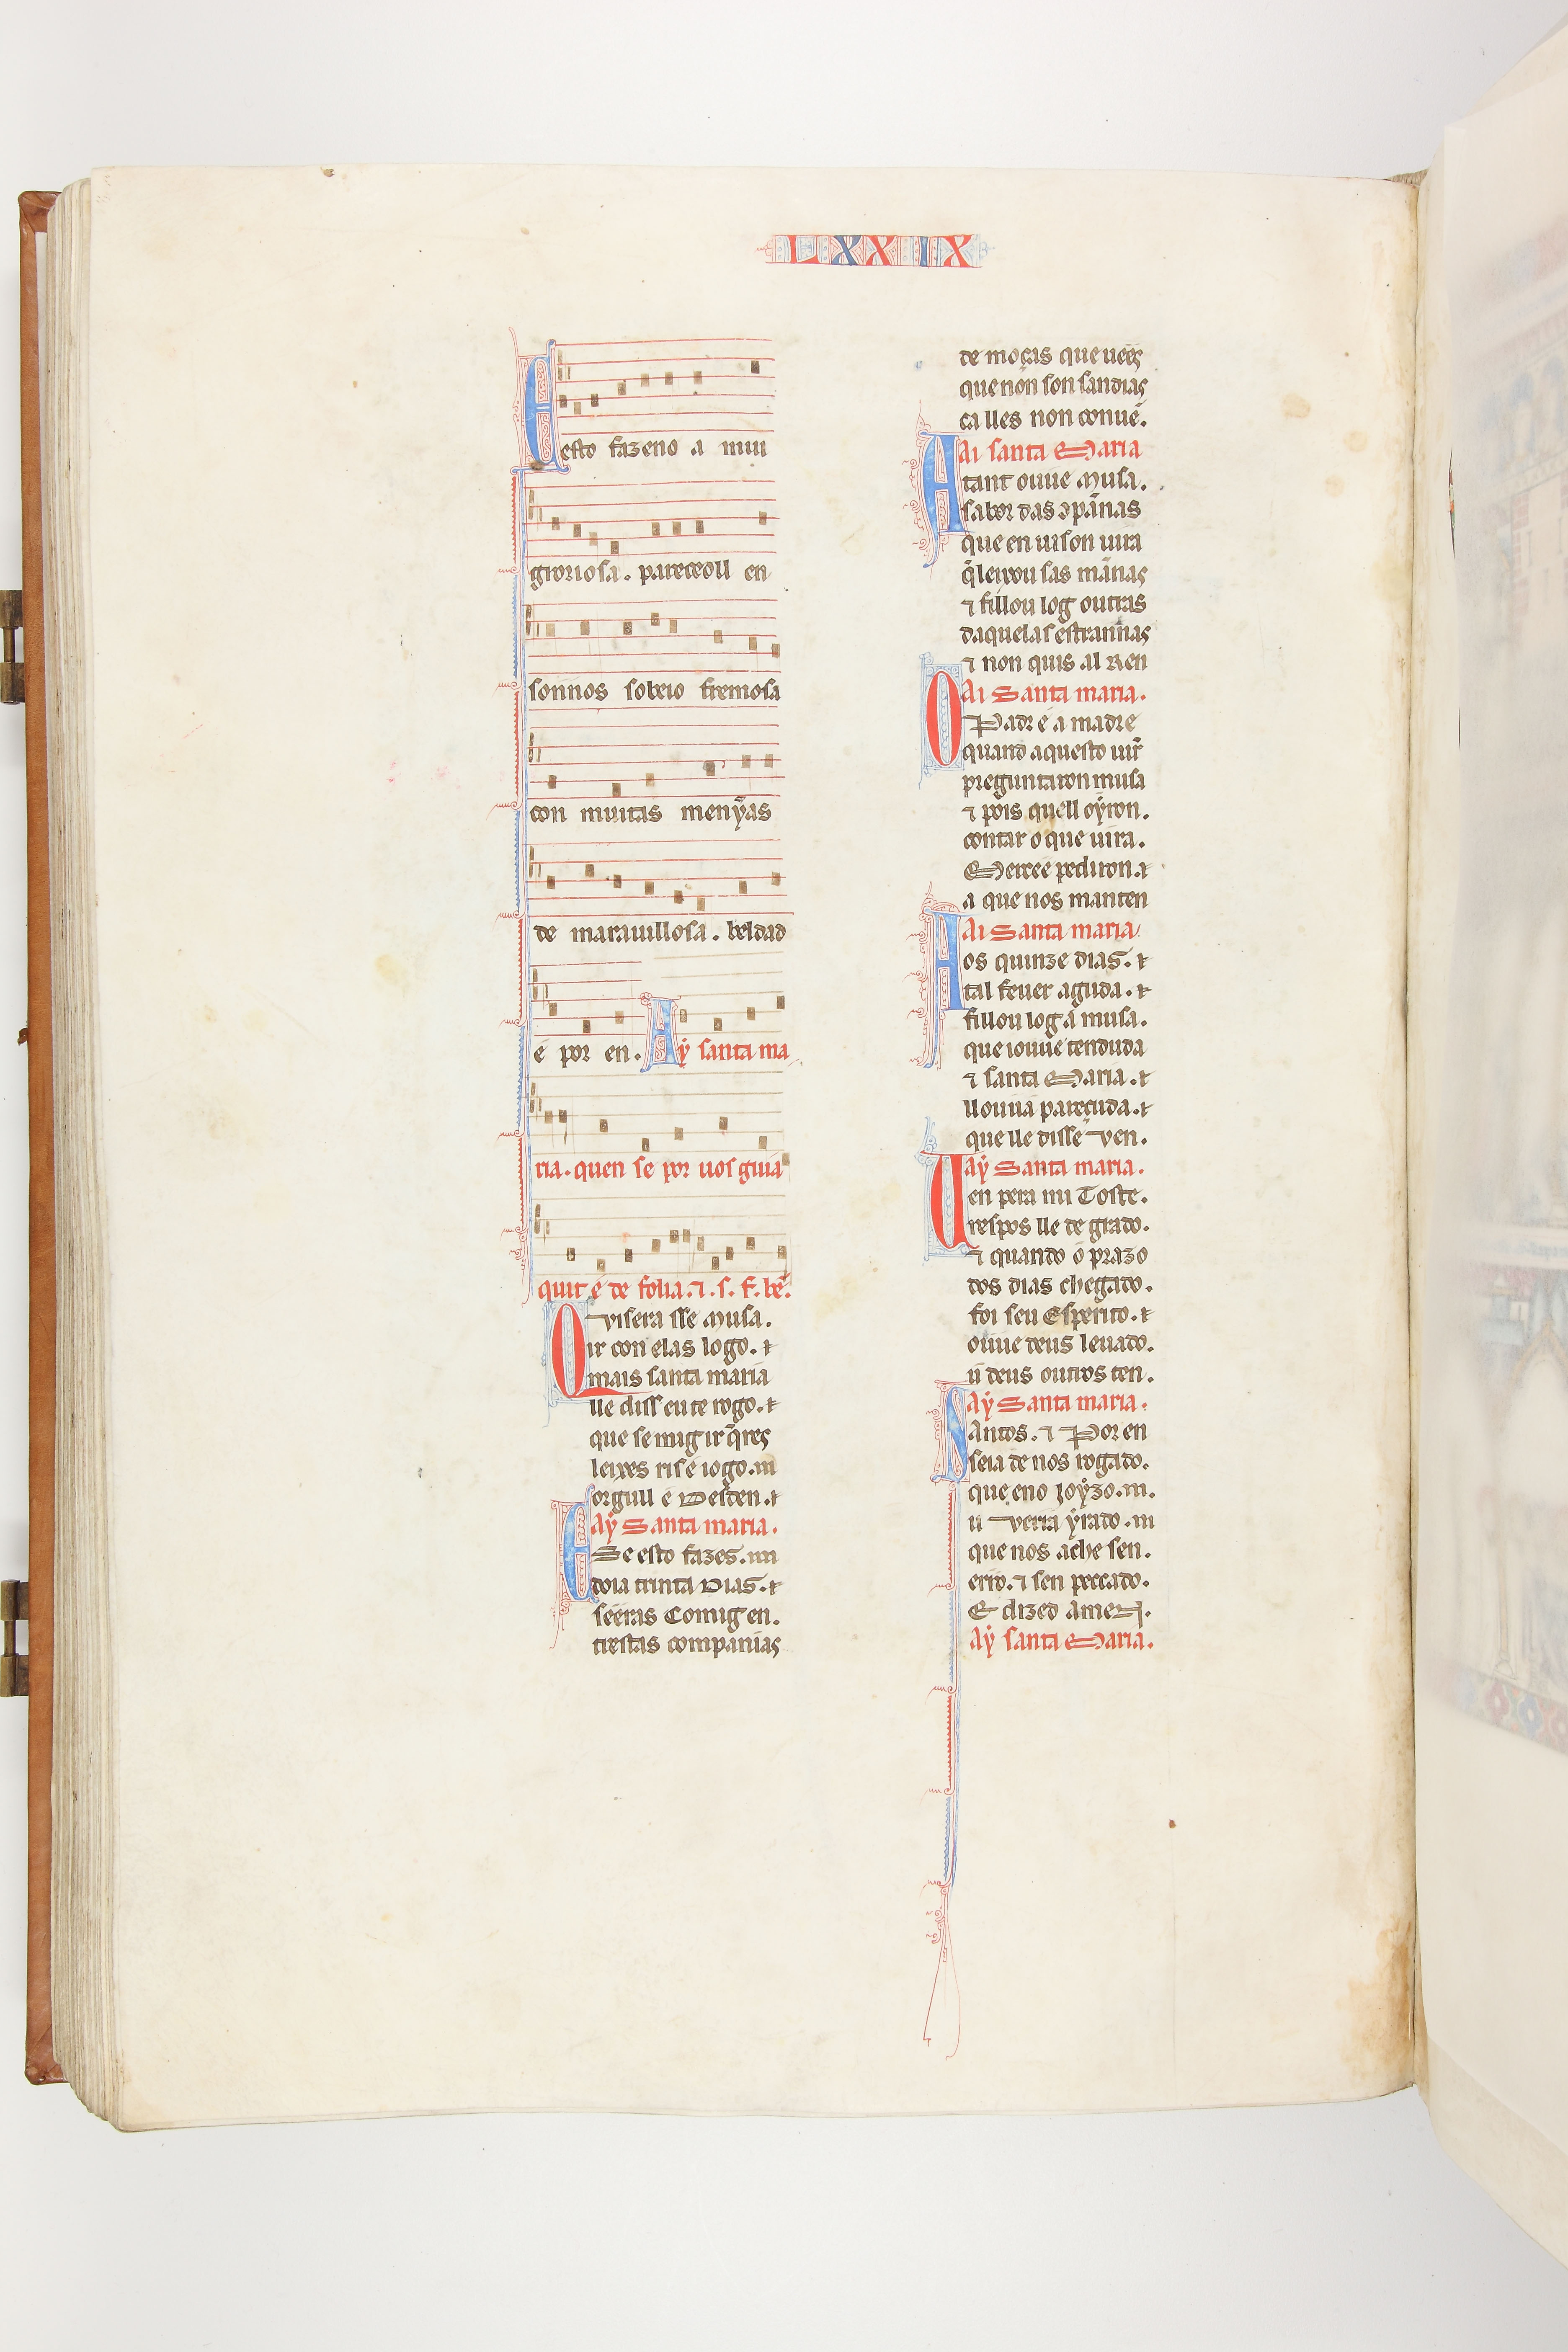 LXXIX
Eesto fazeno a mui
groriosa . pareceoll en
sonnos sobeio fremosa
con muitas meninnas
de marauillosa . beldad
e por en . Aẏ santa ma
ria . quen se por uos guia
quit é de folia . ⁊ . s . f . bẽ .
Quisera sse musa .
ir con elas logo . ⁊
mais santa maria
lle diss eu te rogo . ⁊
que se mig ir q̃res
leixes ris e iogo . m
orgull e desden . ⁊
Aẏ Santa maria .
E se esto fazes .
doia trinta dias . ⁊
seeras comig en .
trestas companias
de moças que uees
que non son sandias
ca lles non conuẽ .
Ai santa Maria
Atant ouue musa .
sabor das cõpãnas
que en uison uira
q̃ leixou sas mãnas
⁊ fillou log outras
daquelas estrannas
⁊ non quis al ren
Ai Santa maria .
O Padre a madre
quand aquesto uir̃
preguntaron musa
⁊ pois quell oẏron .
contar o que uira .
Mercee pediron . ⁊
a que nos manten
Ai Santa maria
Aos quinze dias . ⁊
tal feuer aguda . ⁊
fillou log á musa .
que iouue tenduda
⁊ santa Maria . ⁊
llouuá pareçuda . ⁊
que lle disse ven .
aẏ Santa maria .
Uen pera mi Toste .
respos lle de grado .
⁊ quando o prazo
dos dias chegado .
foi seu Esperito . ⁊
ouue deus leuado .
u deus outros ten .
aẏ Santa maria .
Santos . ⁊ Por en
seia de nos rogado .
que eno joẏzo . m .
u verra ẏrado . m
que nos ache sen .
erro . ⁊ sen peccado .
E dized amen .
aẏ santa Maria .